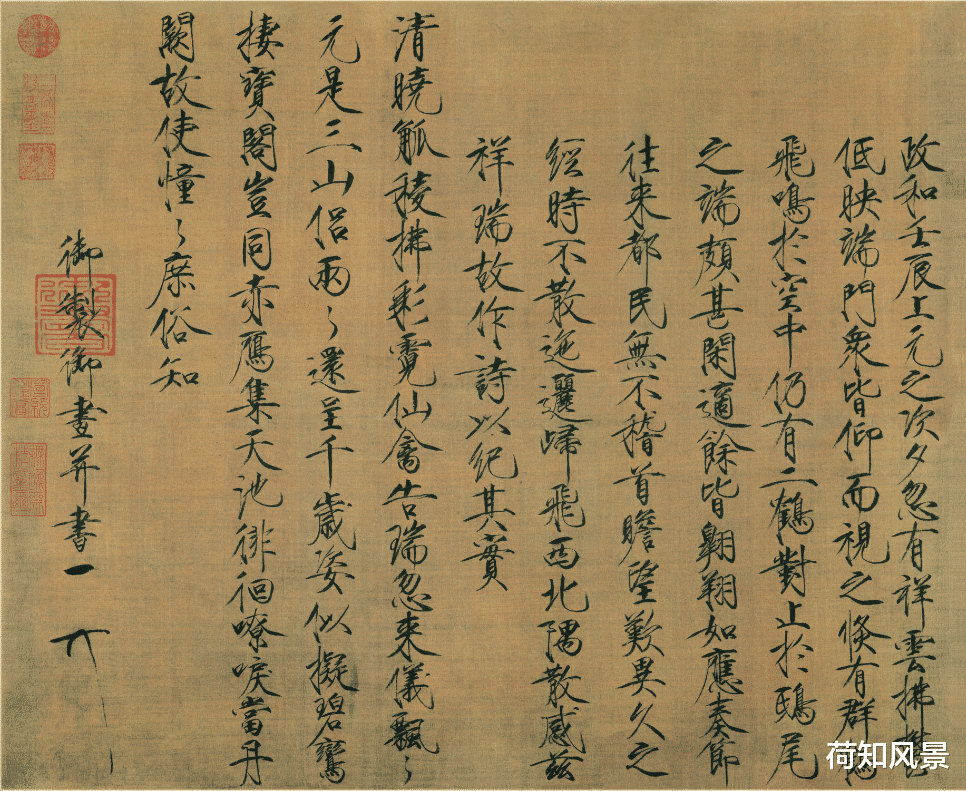 政和壬辰上元之次夕忽有祥雲拂鬱
低映端門眾皆仰而視之倏有群鶴
飛鳴於空中仍有二鶴對止於鴟尾
之端頗甚閑適餘皆翱翔如應奏節
往來都民無不稽首瞻望歎異久之
經時不散迤邐歸飛西北隅散感茲
祥瑞故作詩以紀其實
清曉觚稜拂彩霓仙禽告瑞忽來儀飄〻
元是三山侶兩〻還呈千歲姿似擬碧鸞
棲寶閣豈同赤鴈集天池徘徊嘹唳當丹
闕故使憧〻庶俗知
御製御畫并書
荷知风景